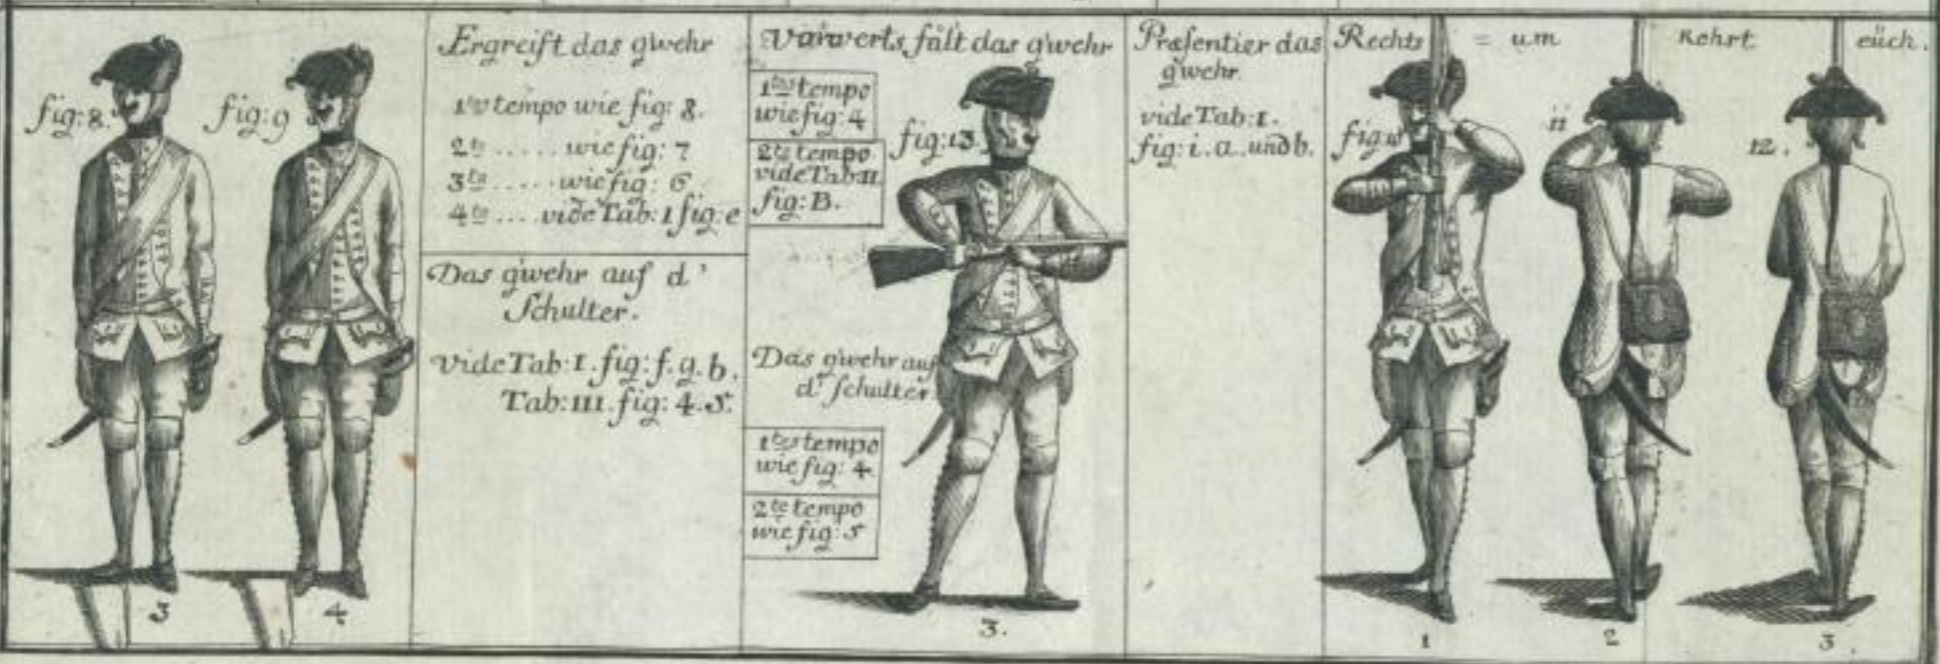 fig: 8.
fig: 9
3
4
Ergreift das g'wehr
1tes tempo wie fig: 8.
2te ..... wie fig: 7
3te ..... wie fig: 6.
4te .... vide Tab: I fig: e
Das g'wehr auf d'
Schulter.
vide Tab: I. fig: f. g. b.
Tab: III. fig: 4. 5.
Vorwerts fält das g'wehr
1tes tempo
wie fig: 4
2te tempo
vide Tab: II
fig: B.
fig: 13.
Das g'wehr auf
d' schulter.
1tes tempo
wie fig: 4.
2te tempo
wie fig: 5
3.
Præsentier das
g'wehr.
vide Tab: I.
fig: i. a. und b.
Rechts = um Kehrt eüch.
fig: 10
11
12.
1
2
3.